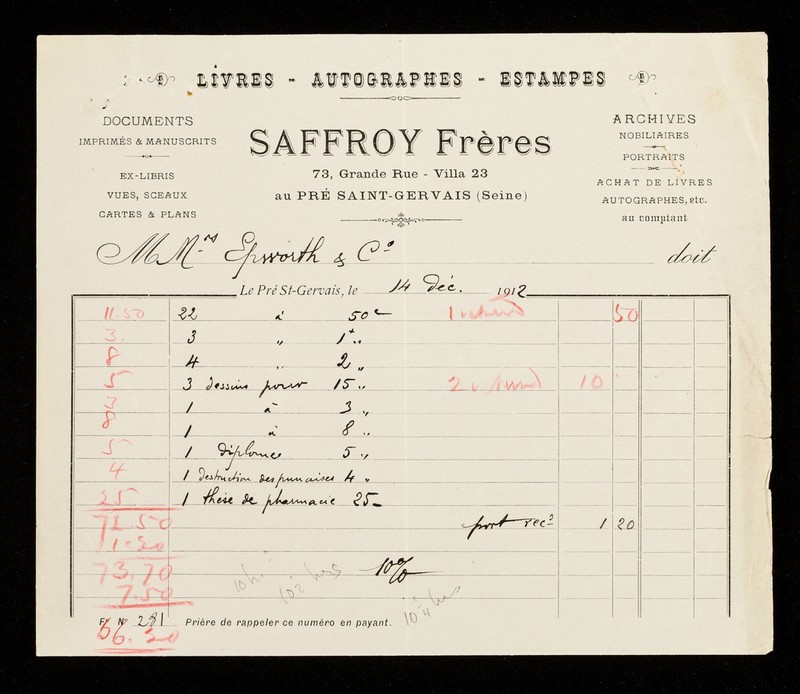 LIVRES - AUTOGRAPHES - ESTAMPES
DOCUMENTS
IMPRIMÉS & MANUSCRITS
EX-LIBRIS
VUES, SCEAUX
CARTES & PLANS
SAFFROY Frères
73, Grande Rue - Villa 23
au PRÉ SAINT-GERVAIS (Seine)
ARCHIVES
NOBILIAIRES
PORTRAITS
ACHAT DE LIVRES
AUTOGRAPHES, etc.
au comptant
MM.rs Epworth & Co doit
Le Pré St-Gervais, le 14 Déc. 1912
11.50 22 à 50c 1 50
3. 3 " 1f "
8 4 " 2 "
5 3 dessins pour 15 " 2 10
3 1 à 3 "
8 1 à 8 "
5 1 diplome 5 "
4 1 Destruction des punaises 4 "
25 1 thèse de pharmacie 25
72 50 port rec? 1 20
1.20
73.70 10%
7.50
Fre No 281 Prière de rappeler ce numéro en payant.
66.20